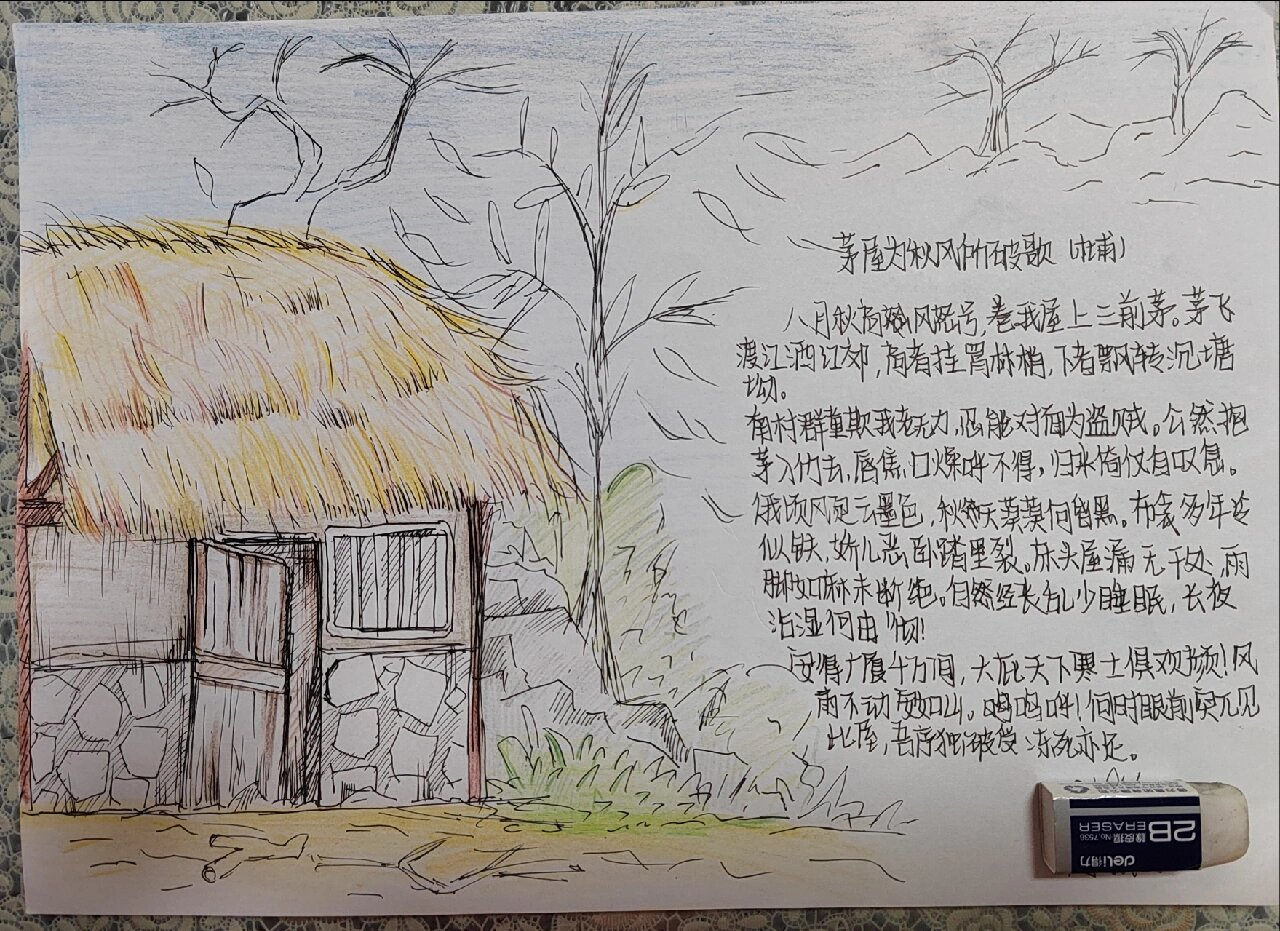 茅屋为秋风所破歌（杜甫）
八月秋高风怒号,卷我屋上三前茅。茅飞
渡江洒江郊,高者挂罥林梢,下者飘转沉塘
坳。
南村群童欺我老无力,忍能对面为盗贼。公然抱
茅入竹去,唇焦口燥呼不得,归来倚仗自叹息。
俄顷风定云墨色,秋天漠漠向昏黑。布衾多年冷
似铁,娇儿恶卧踏里裂。床头屋漏无干处,雨
脚如麻未断绝。自经丧乱少睡眠,长夜
沾湿何由彻!
安得广厦千万间,大庇天下寒士俱欢颜!风
雨不动安如山。呜呼!何时眼前突兀见
此屋,吾庐独破受冻死亦足。
2B
ERASER
橡皮擦 No.7536
deli得力